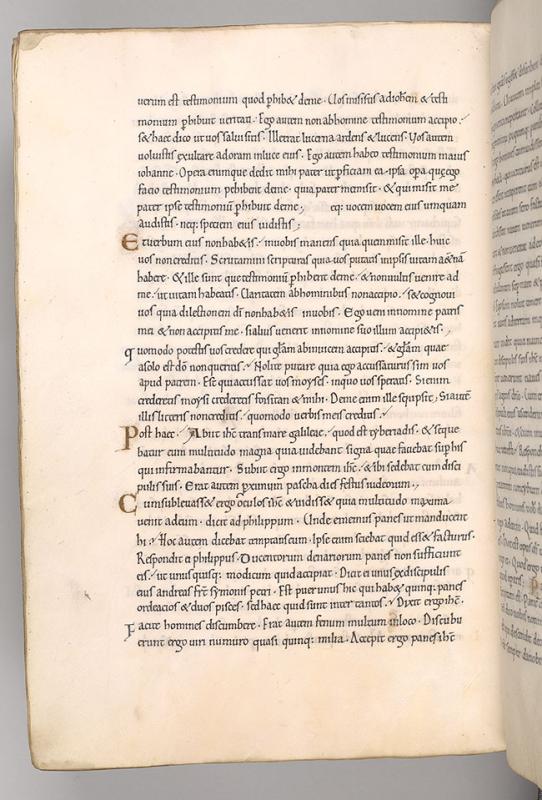 uerum est testimonium quod phib& deme · Uos misistis adiohem & testi
monium phibuit ueritati · Ego autem non abhomine testimonium accipio ·
s& haec dico ut uos salui sitis · Ille erat lucerna ardens & lucens · Uos autem
uoluistis exultare adoram inluce eius · Ego autem habeo testimonium maius
iohanne · Opera enim que dedit mihi pater ut pficiam ea · ipsa opa quę ego
facio testimonium pehibent deme · quia pater me misit · & qui misit me
pater ipse testimoniū phibuit deme ; eq: uocem uocem eius umquam
audistis · neq: speciem eius uidistis ;
Et uerbum eius non hab&is · inuobis manens quia quem misit ille · huic
uos non creditis · Scrutamini scripturas quia uos putatis inipsis uitam aet̄nā
habere · & ille sunt que testimoniū phibent deme · & nonuultis uenire ad
me · ut uitam habeatis · Claritatem abhominibus nonaccipio · s& cognoui
uos quia dilectionem di nonhab&is inuobis · Ego ueni innomine patris
mei & non accipitis me · si alius uenerit innomine suo illum accipi&is ·
quomodo potestis uos credere qui glam abinuicem accipitis · & glam quae
asolo est do non queritis · Nolite putare quia ego accusaturus sim uos
apud patrem · Est qui accussat uos moyses · inquo uos speratis · Si enim
crederetis moysi crederetis forsitan & mihi · Deme enim ille scripsit · Si autē
illis litteris non creditis · quomodo uerbis meis creditis ·
Post haec · Abiit ihc trans mare galileae · quod est tyberiadis · & seque
batur eum multitudo magna quia uidebant signa quae faciebat sup his
qui infirmabantur · Subiit ergo inmontem ihc · & ibi sedebat cum disci
pulis suis · Erat autem pximum pascha dies festus iudeorum ·
Cum subleuass& ergo oculos ihc & uidiss& quia multitudo maxima
uenit adeum · dicit ad philippum · Unde ememus panes ut manducent
hi · Hoc autem dicebat temptans eum · Ipse enim sciebat quid ess& facturus ·
Respondit ei philippus · Ducentorum denariorum panes non sufficiunt
eis · ut unus quisq: modicum quid accipiat · Dicit ei unus ex discipulis
eius andreas fr̄ symonis petri · Est puer unus hic qui hab& quinq: panes
ordeacios & duos pisces · sed haec quid sunt inter tantos · Dixit ergo ihc ·
Facite homines discumbere · Erat autem fenum multum inloco · Discubu
erunt ergo uiri numero quasi quinq: milia · Accepit ergo panes ihc